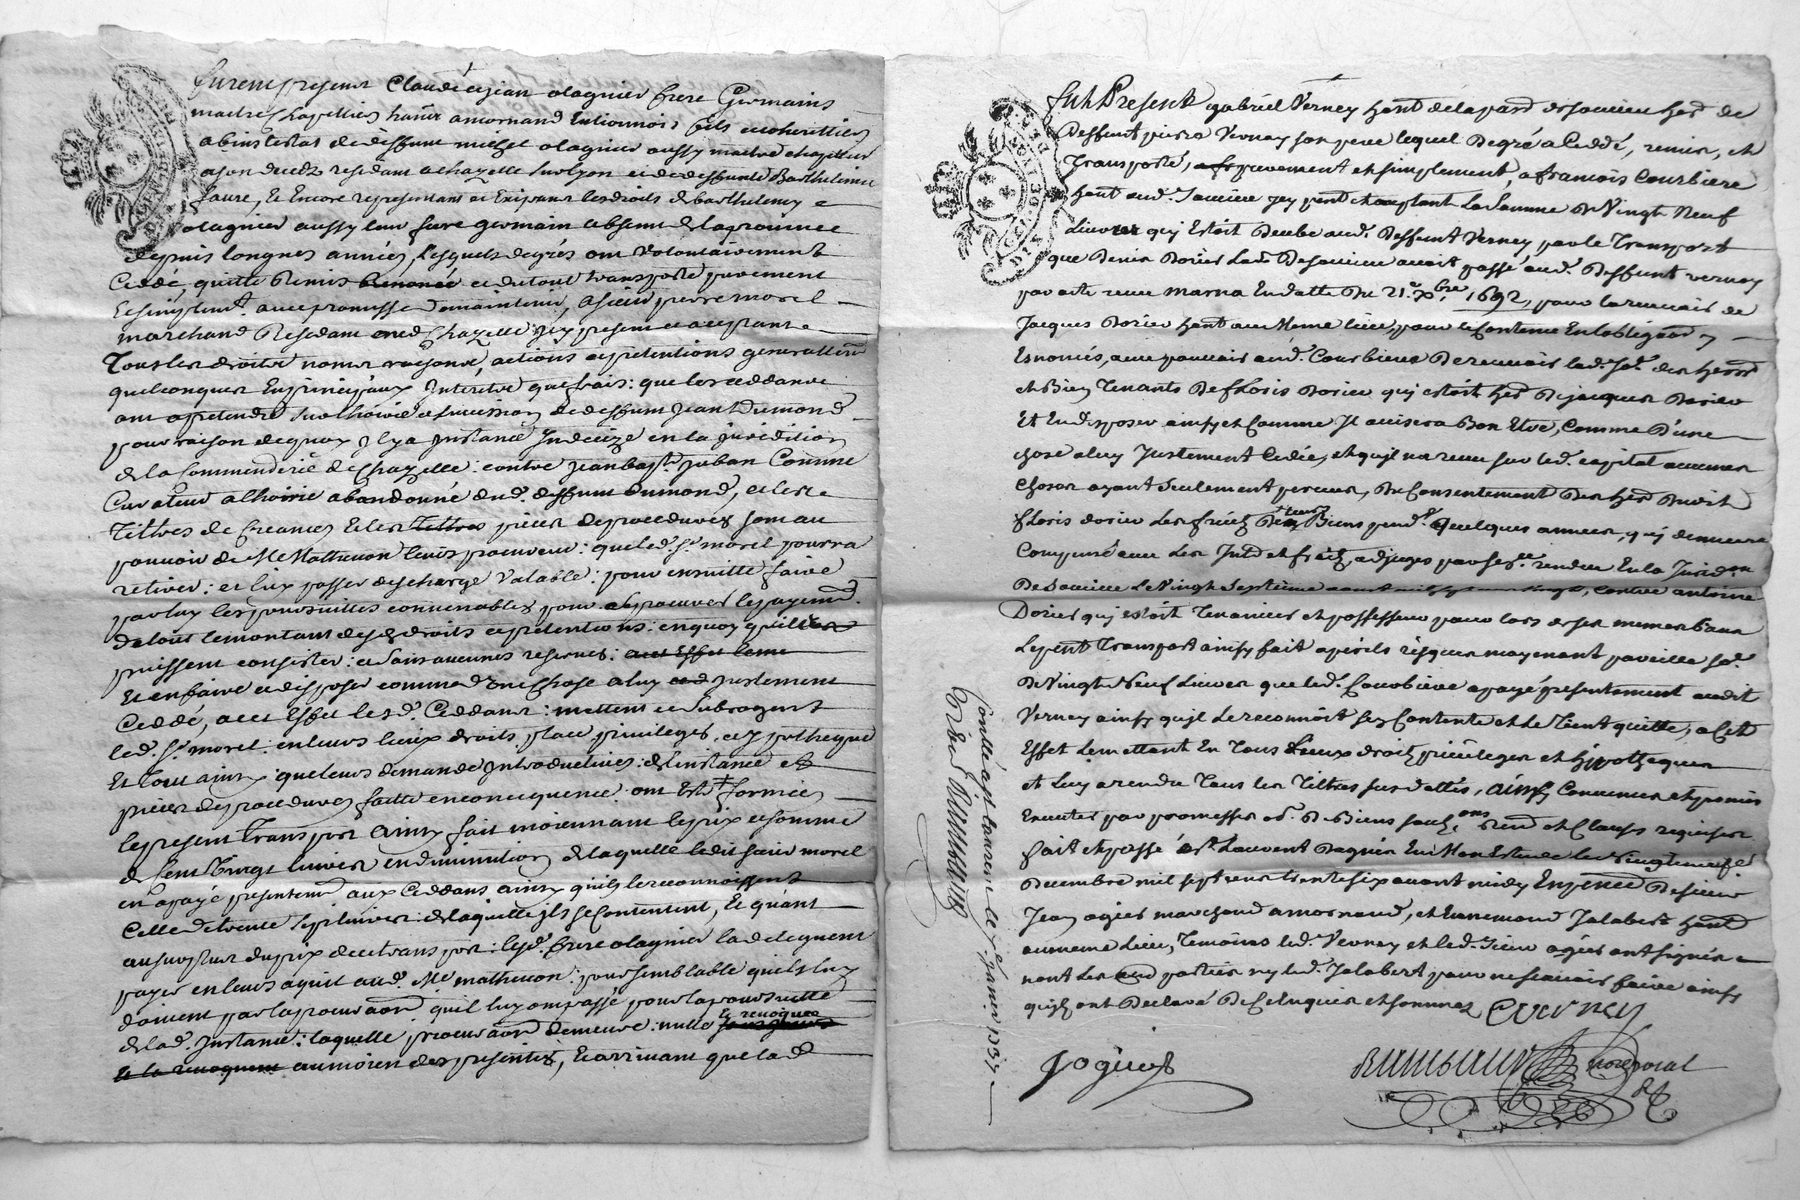 Furent presents Claude et jean olagnier frere Germains
maitres Chapelliers a mornand Lionnois fils et coheritiers
abintestat de deffunt michel olagnier aussy maitre chapellier
a son deceds residant a chazelle sur lyon et de deffunte Barthelemie
faure, Et Encore representans et Exerçans les droits de barthelemy
olagnier aussy leur frere germain absent de la province
depuis longues années, Lesquels de grés ont volontairement
Ceddé, quitté Remis et du tout transporté purement
Et simplemt. avec promesse de maintenir, a sieur pierre morel
marchand Residant aud. Chazelle jcy present et acceptant
Tous les droits noms raisons, actions et pretentions generallemt
quelconques En principaux Interets et frais: que les ceddants
ont a pretendre sur l'hoirie et succession de deffunt jean Dumond
pour raison de quoy Il y a Instance Indecize en la juridition
de la Commenderie de Chazelle: contre jean bapte. juban Comme
Curateur a l'hoirie abandonné dud. deffunt dumond, et les
Titres de Creances Et les pieces de procedures sont au
pouvoir de Me Mathevon leurs procureur: que led. Sr. morel pourra
retirer: et luy passer descharge valable: pour ensuitte faire
par luy les poursuittes convenables pour le payemt.
de tout le montant desd. droits et pretentions: en quoy qu'ils
puissent consister: et sans aucunes reserves:
Et en faire et disposer comme d'une Chose a luy justement
Ceddé, a cet Effet lesd. Ceddants: mettent et subrogent
led. Sr. morel: en leurs lieux droits place privileges, et ypotheque
Et tout ainsy que leurs demande Introductives: de l'instance et
pieces de procedures faitte en consequence ont Esté formées
le present transport ainsy fait moiennant le prix et somme
de Cent Vingt livres en diminution de laquelle ledit sieur morel
en a payé presentemt. aux Ceddans ainsy qu'ils le reconnoissent
Celle de trente sept livres: de laquelle ils se Contentent, Et quant
au surplus du prix de ce transport: lesd. frere olagnier la deleguent
payer en leurs aquit aud. Me mathevon: pour semblable qu'ils luy
doivent par la procuraon. qu'il luy ont passé pour la poursuitte
de lad. Instance: laquelle procuraon demeure: nulle et revoquée
au moien des presentes, Et arrivant que lad.
Fut Present gabriel Verney hant. de la parr. de Soucieu her. de
Deffunt pierre Verney son pere lequel De gré a Ceddé, remis, et
Transporté, purement et simplement, a françois Courbiere
hant. aud. Soucieu jcy pnt. et acceptant La Somme De Vingt Neuf
Livres qui Estoit Deube aud. Deffunt Verney par le Transport
que Denis Dories Lad. De Soucieu avoit passé aud. Deffunt verney
par acte receu marna En datte Du 21e. Xbre 1692, pour la recevoir de
Jacques Dories hant. au Meme lieu, pour le Contenu En l'obligaon
Enoncés, avec pouvoir aud. Courbiere De recevoir lad. So. des hers.
et Bien Tenants De floris Dories qui estoit her. De jacques Dories
Et En Disposer ainsy et Comme Il avisera Bon Etre, Comme D'une
chose a luy Justement Cedée, et qu'il n'a receu sur led. capital aucunes
Choses ayant Seulement perceus, Du Consentement Des hers. Dudit
floris dories Les fruits Des Biens pend. quelques années, qui demeurent
Compensé avec Les Intd. et frais, adjuges par Sence. rendue En la Jurid.on
De Soucieu Le Vingt Septieme contre antoine
Dories qui estoit Tenancier et possesseur pour lors de ses memes biens
Le pnt. Transport ainsy fait a perils risques moyenant pareille so.
De Vingt Neuf Livres que led. Courbiere a payé presentement audit
Verney ainsy qu'il Le reconnoit s'en Contente et Le Tient quitte, a Cet
Effet Le mettant En Tous Lieux droits privileges et hipotheques
et Luy a rendu Tous Les Tiltres sus dattés, ainsy Convenu et promis
Executer par promesses od. De Biens soubz.ons Ren.ons et Clauses requises
fait et passé a St. Laurent Dagnin En Mon Estude le Vingt neuf
Decembre mil sept cens trente six avant midy En pnce. De sieur
Jean agies marchand a mornand, et Ennemond Jalabert hant.
au meme Lieu, Temoins led. Verney et led. sieur agies ont signés
non Les aud. parties ny led. Jalabert pour ne scavoir faire ainsy
qu'ils ont Declaré De ce Enquis et sommés GVerney
J agies
not. royal
Contllé a st. laurent le 8e. janvier 1737